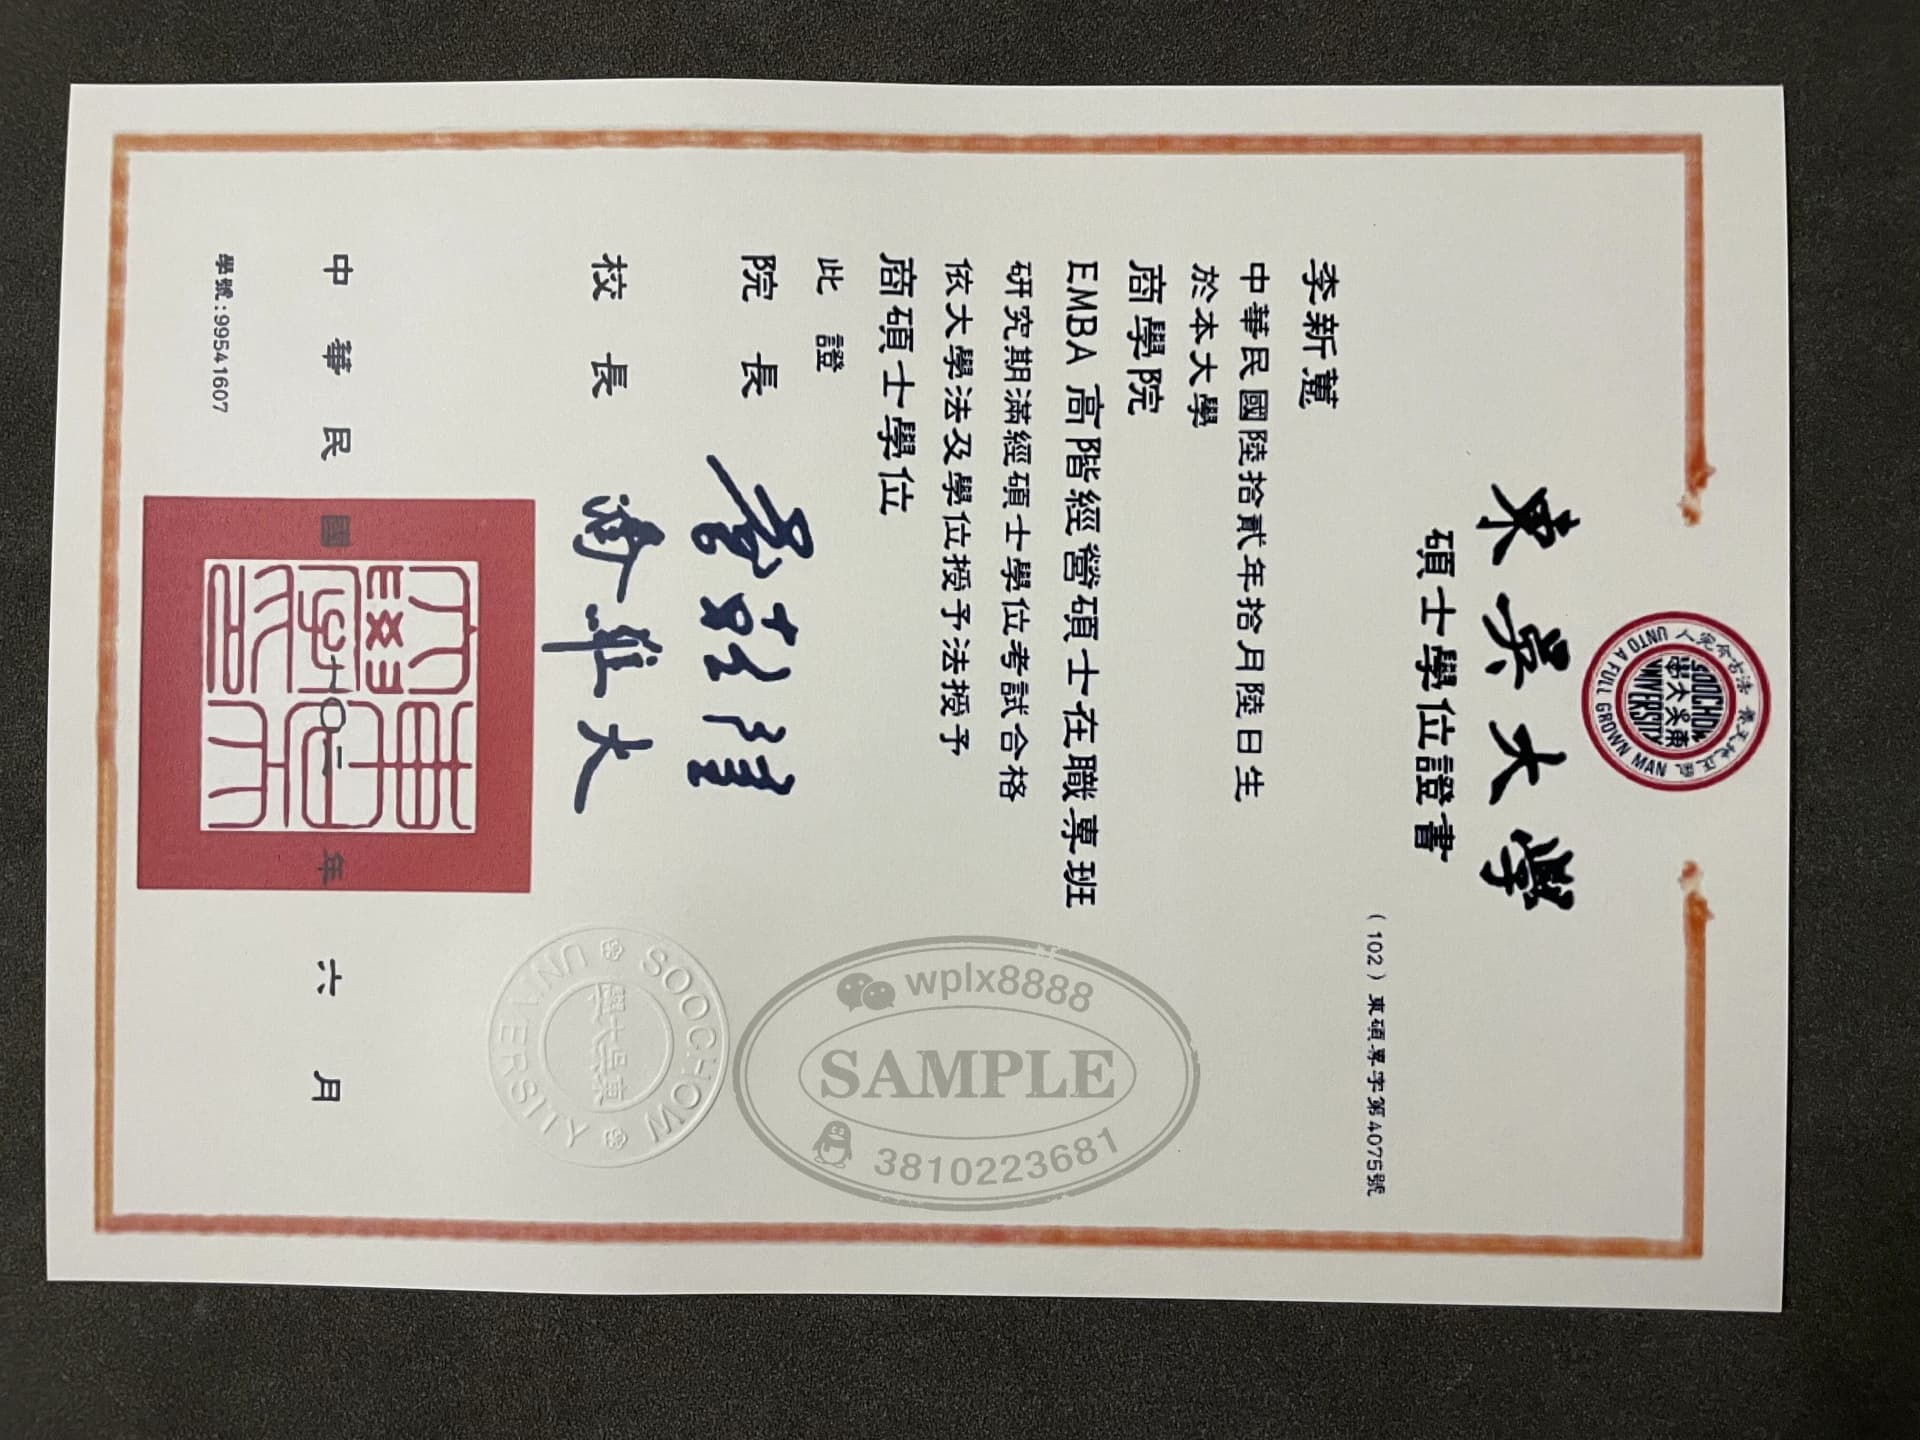 東吳大學
碩士學位證書
(102)東碩專字第4075號
李新薏
中華民國陸拾貳年拾月陸日生
於本大學
商學院
EMBA 高階經營碩士在職專班
研究期滿經碩士學位考試合格
依大學法及學位授予法授予
商碩士學位
此證
院長
校長
中華民國一〇二年六月
學號:99541607
SOOCHOW UNIVERSITY
東吳大學
UNTO A FULL GROWN MAN
養天地正氣 法古今完人
SOOCHOW UNIVERSITY
東吳大學
wplx8888
SAMPLE
3810223681